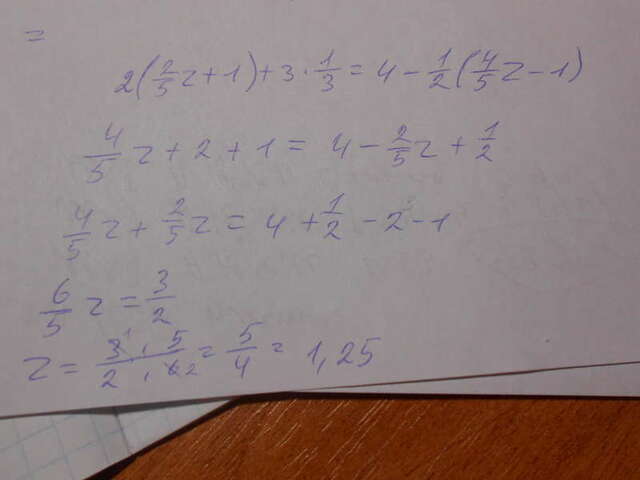 =
2(2/5 z + 1) + 3 · 1/3 = 4 - 1/2 (4/5 z - 1)
4/5 z + 2 + 1 = 4 - 2/5 z + 1/2
4/5 z + 2/5 z = 4 + 1/2 - 2 - 1
6/5 z = 3/2
z = 3¹ · 5 / 2 · 6₂ = 5/4 = 1,25